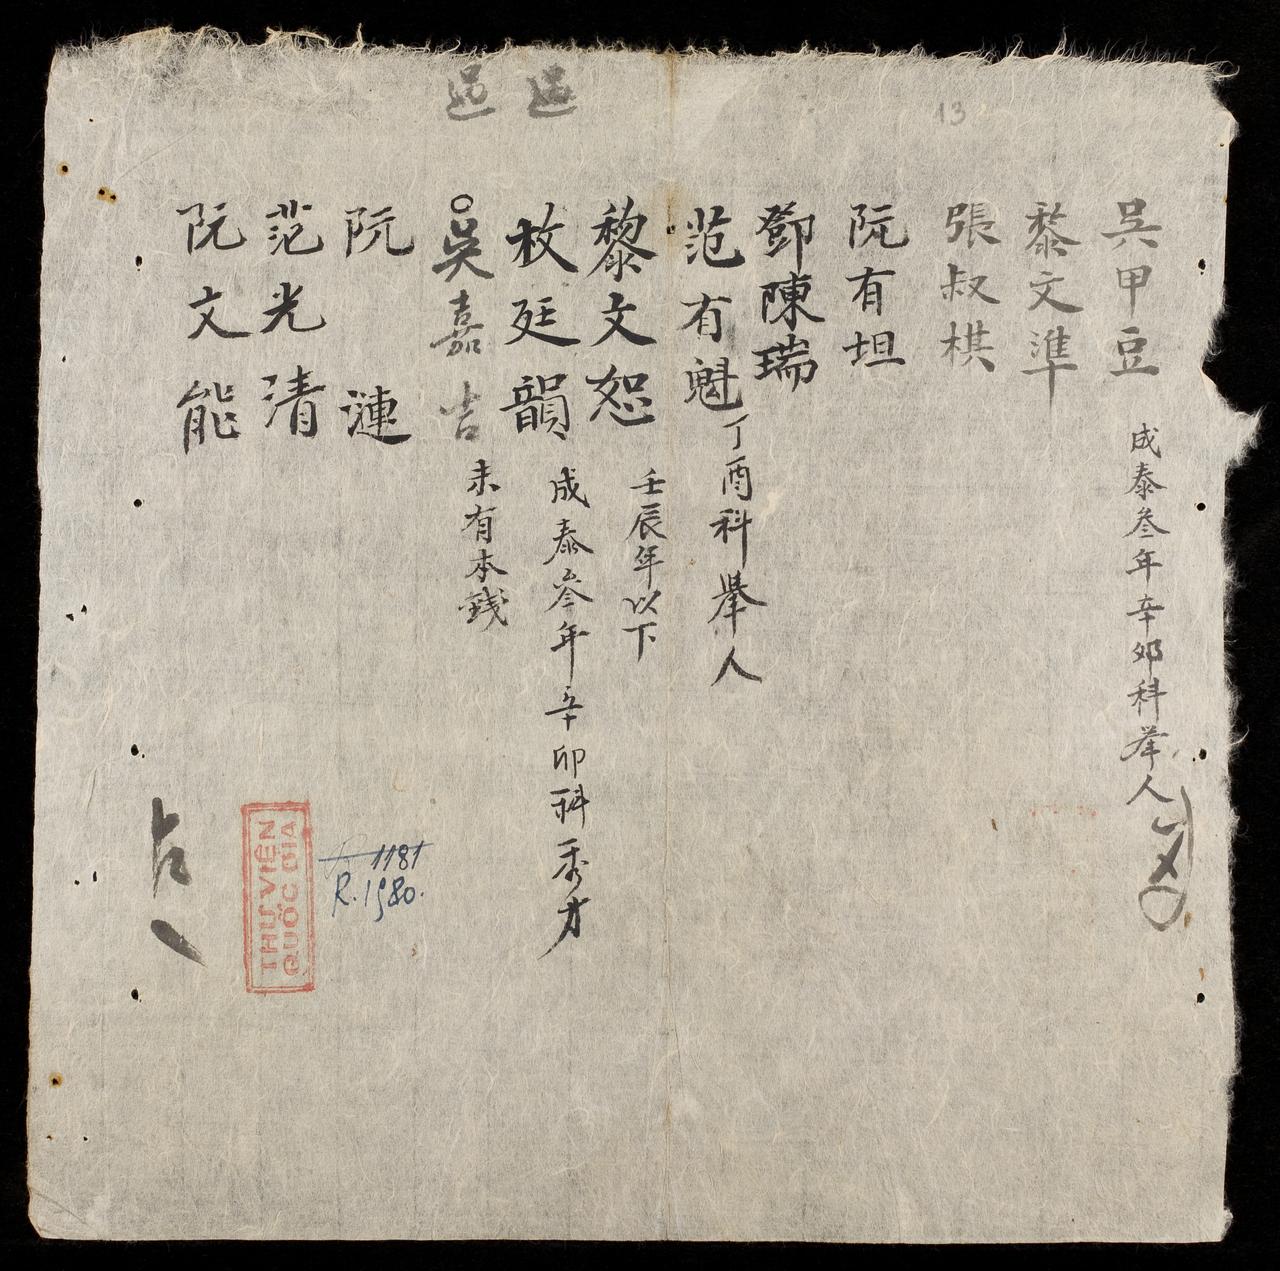 13
吴甲豆 成泰叁年辛卯科举人
黎文準
張叔棋
阮有坦
鄧陳瑞
范有魁 丁酉科舉人
黎文恕 壬辰年以下
枚廷韻 成泰叁年辛卯科秀才
吳嘉吉 未有本錢
阮 漣
范光清
阮文能
THƯ VIỆN
QUỐC GIA
1181
R.1980.